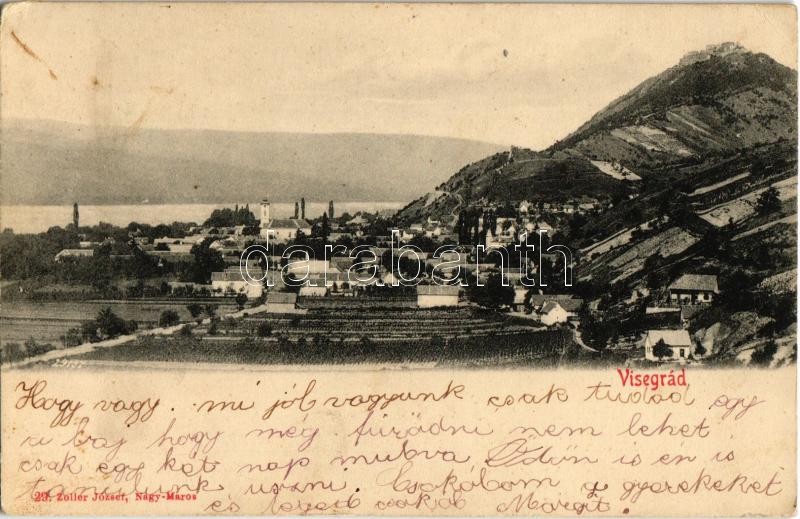 darabanth
Visegrád
Hogy vagy. mi jól vagyunk csak tudod egy
a baj hogy még fürödni nem lehet
csak egy két nap mulva Ödön is én is
tanulunk uszni. Csókolom a gyerekeket
és
Margit.
29. Zoller József, Nagy-Maros